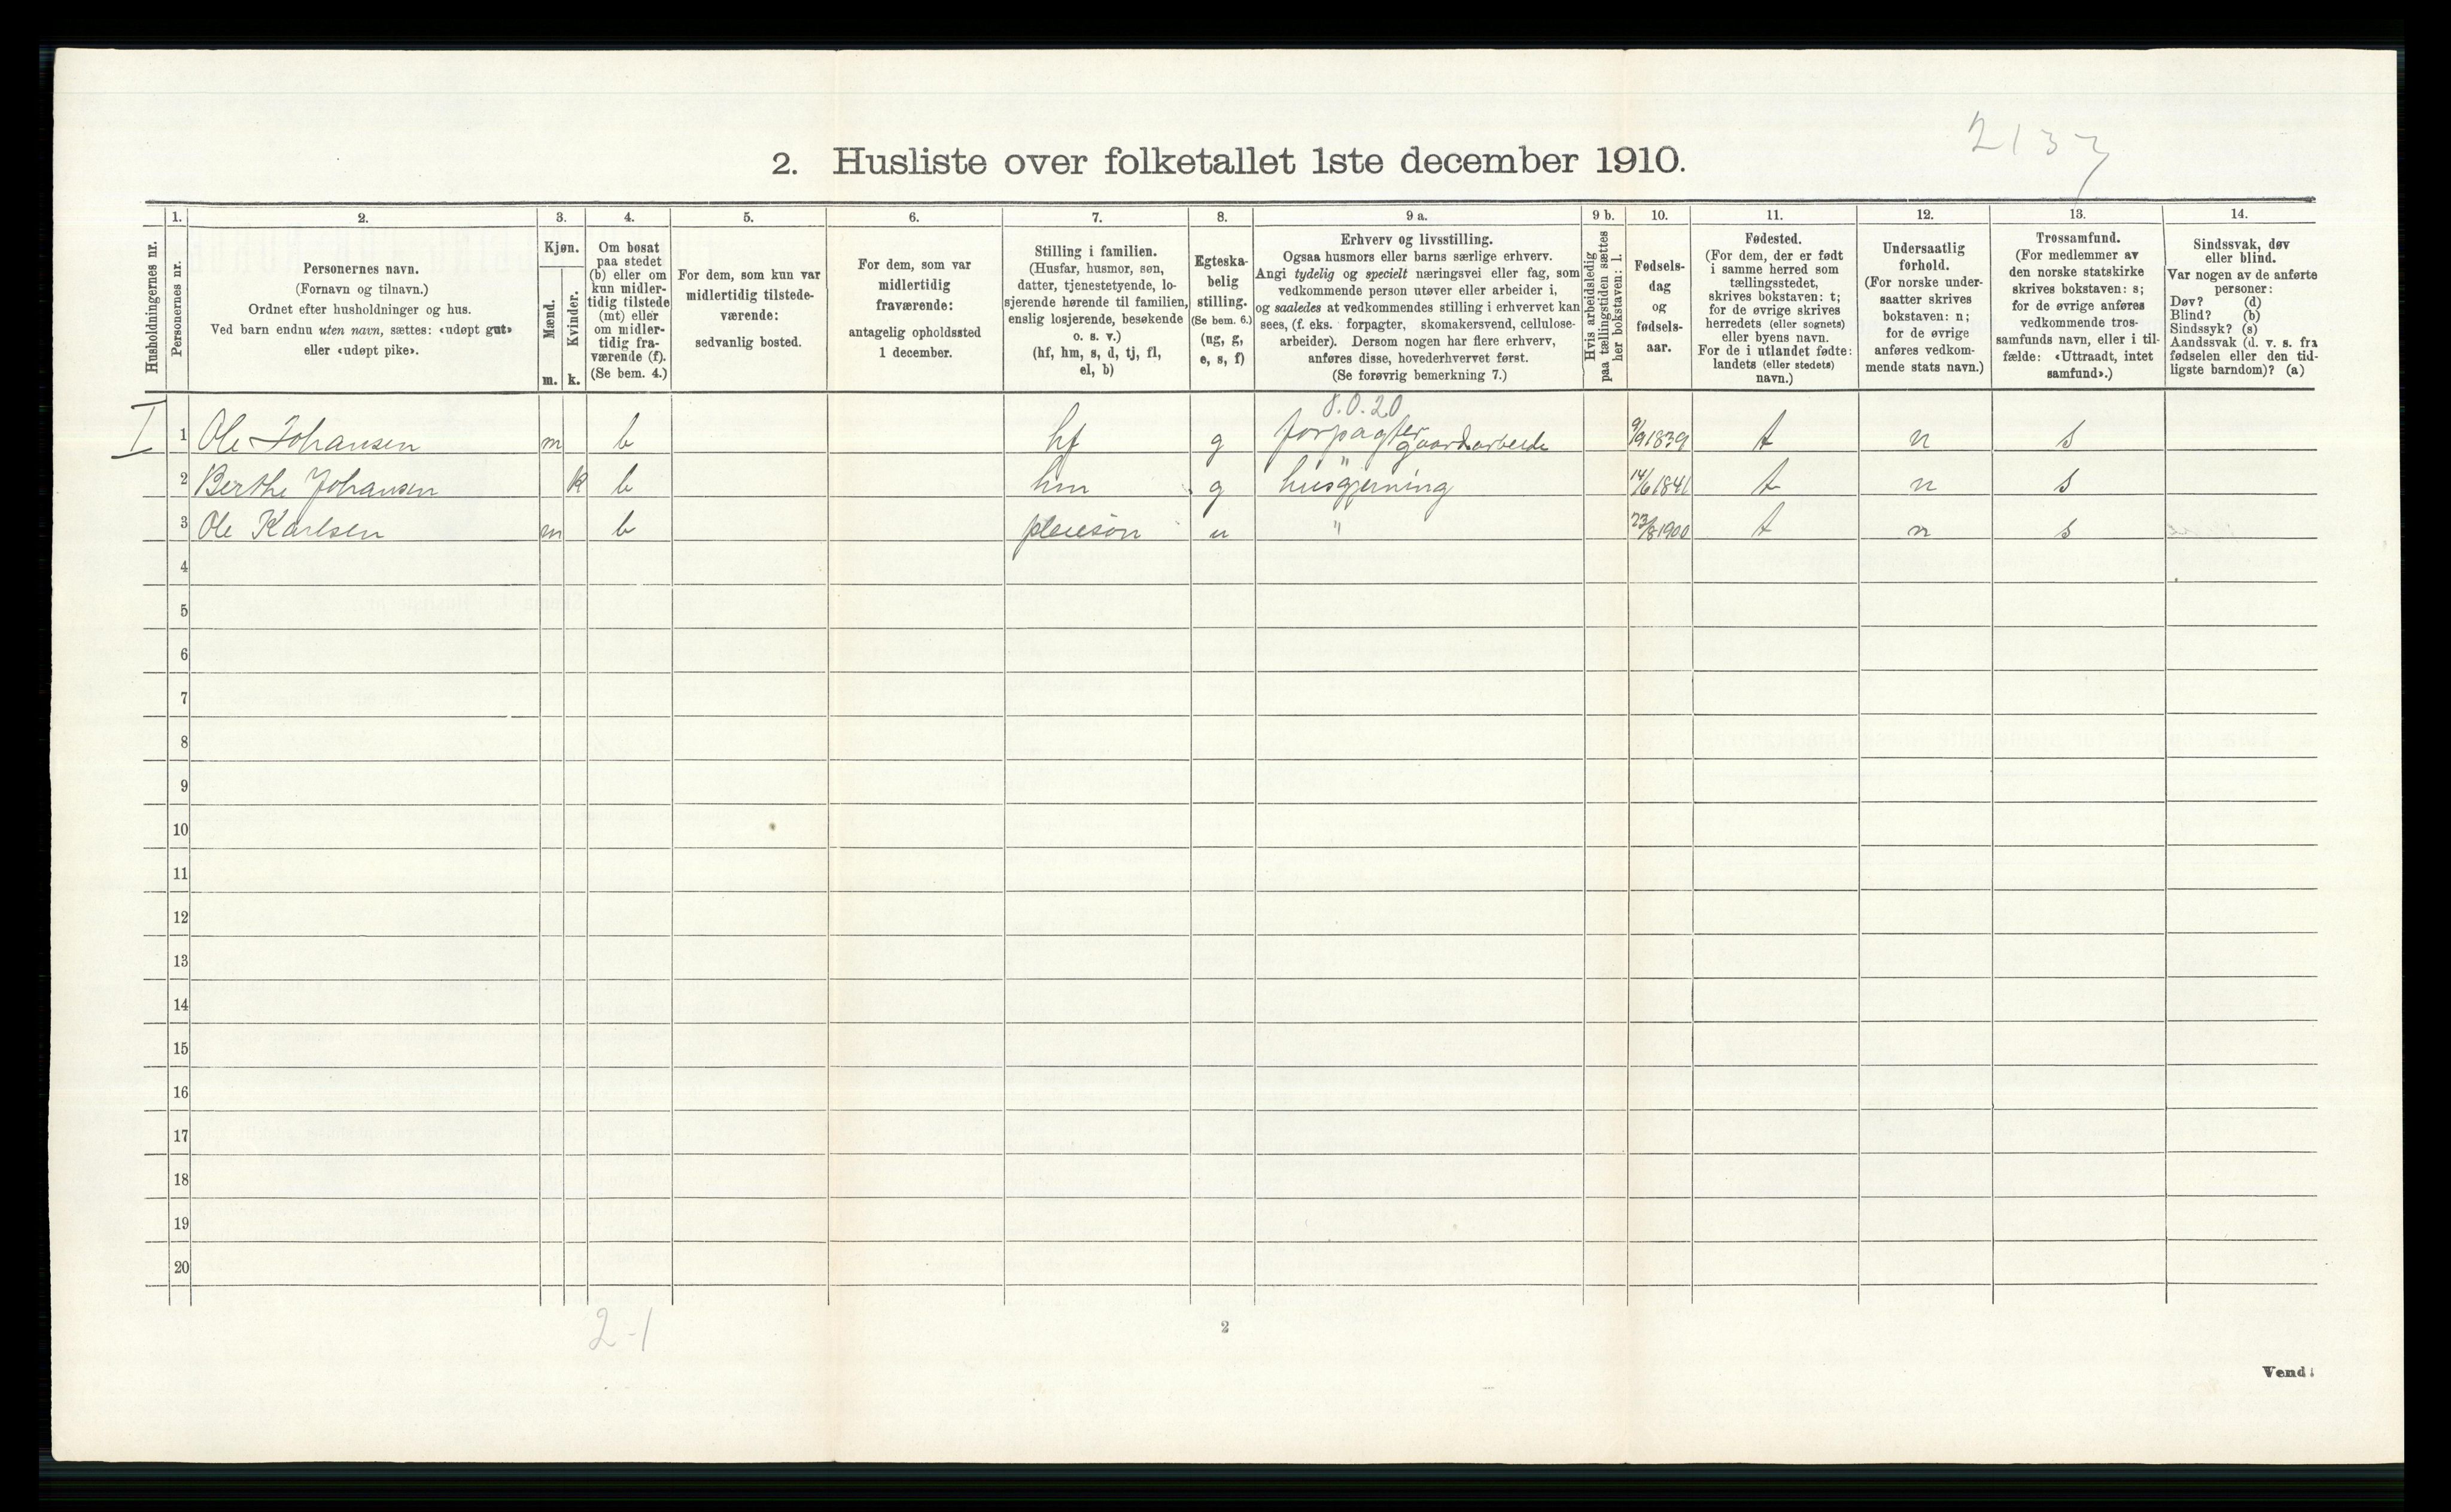 2133
2. Husliste over folketallet 1ste december 1910.
Husholdningernes nr.
1.
Personernes nr.
2.
Personernes navn.
(Fornavn og tilnavn.)
Ordnet efter husholdninger og hus.
Ved barn endnu uten navn, sættes: «udøpt gut»
eller «udøpt pike».
3.
Kjøn.
Mænd.
Kvinder.
m. k.
4.
Om bosat
paa stedet
(b) eller om
kun midler-
tidig tilstede
(mt) eller
om midler-
tidig fra-
værende (f).
(Se bem. 4.)
5.
For dem, som kun var
midlertidig tilstede-
værende:
sedvanlig bosted.
6.
For dem, som var
midlertidig
fraværende:
antagelig opholdssted
1 december.
7.
Stilling i familien.
(Husfar, husmor, søn,
datter, tjenestetyende, lo-
sjerende hørende til familien,
enslig losjerende, besøkende
o. s. v.)
(hf, hm, s, d, tj, fl,
el, b)
8.
Egteska-
belig
stilling.
(Se bem. 6.)
(ug, g,
e, s, f)
9 a.
Erhverv og livsstilling.
Ogsaa husmors eller barns særlige erhverv.
Angi tydelig og specielt næringsvei eller fag, som
vedkommende person utøver eller arbeider i,
og saaledes at vedkommendes stilling i erhvervet kan
sees, (f. eks. forpagter, skomakersvend, cellulose-
arbeider). Dersom nogen har flere erhverv,
anføres disse, hovederhvervet først.
(Se forøvrig bemerkning 7.)
9 b.
Hvis arbeidsledig
paa tællingstiden sættes
her bokstaven: l.
10.
Fødsels-
dag
og
fødsels-
aar.
11.
Fødested.
(For dem, der er født
i samme herred som
tællingsstedet,
skrives bokstaven: t;
for de øvrige skrives
herredets (eller sognets)
eller byens navn.
For de i utlandet fødte:
landets (eller stedets)
navn.)
12.
Undersaatlig
forhold.
(For norske under-
saatter skrives
bokstaven: n;
for de øvrige
anføres vedkom-
mende stats navn.)
13.
Trossamfund.
(For medlemmer av
den norske statskirke
skrives bokstaven: s;
for de øvrige anføres
vedkommende tros-
samfunds navn, eller i til-
fælde: «Uttraadt, intet
samfund».)
14.
Sindssvak, døv
eller blind.
Var nogen av de anførte
personer:
Døv? (d)
Blind? (b)
Sindssyk? (s)
Aandssvak (d. v. s. fra
fødselen eller den tid-
ligste barndom)? (a)
8.0.20
I 1 Ole Johansen m b hf g forpagter gaardsarbeide 9/9 1839 t n s
2 Berthe Johansen k b hm g husgjerning 14/6 1841 t n s
3 Ole Karlsen m b pleiesøn u " 23/8 1900 t n s
4
5
6
7
8
9
10
11
12
13
14
15
16
17
18
19
20
2-1
2
Vend!